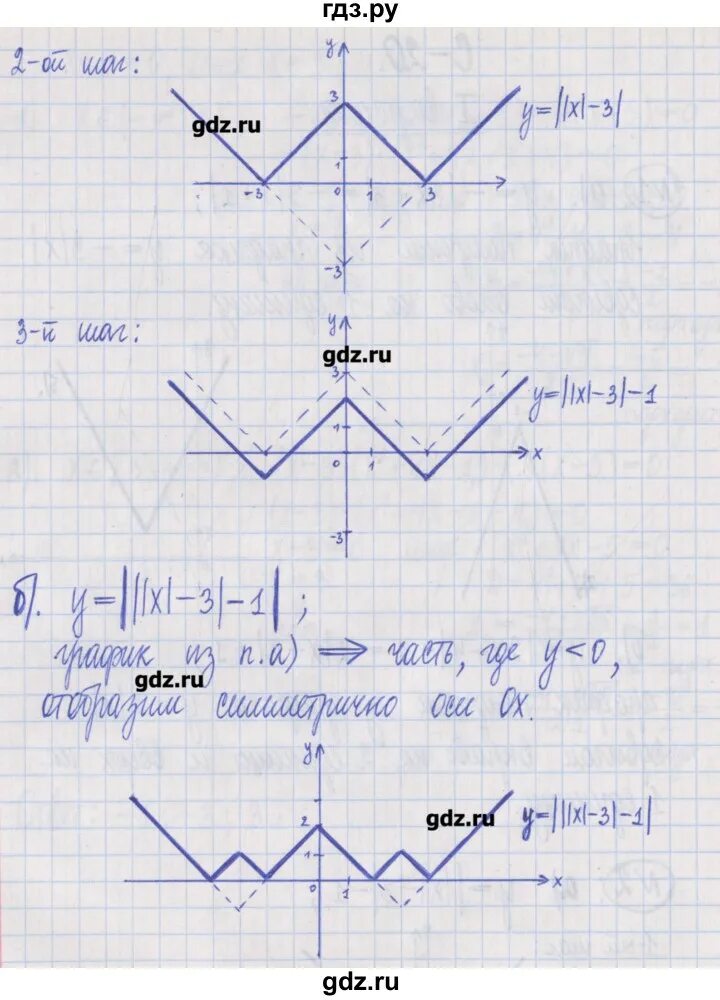 гдз.ру
2-ой шаг:
y
gdz.ru
3
y=||x|-3|
1
-3
0
1
3
-3
3-й шаг:
y
gdz.ru
3
y=||x|-3|-1
1
0
1
x
-3
б). y=|||x|-3|-1|;
график из п.а) ⟹ часть, где y<0,
gdz.ru
отобразим симметрично оси Ox.
y
2
gdz.ru
y=|||x|-3|-1|
1
0
1
x
gdz.ru